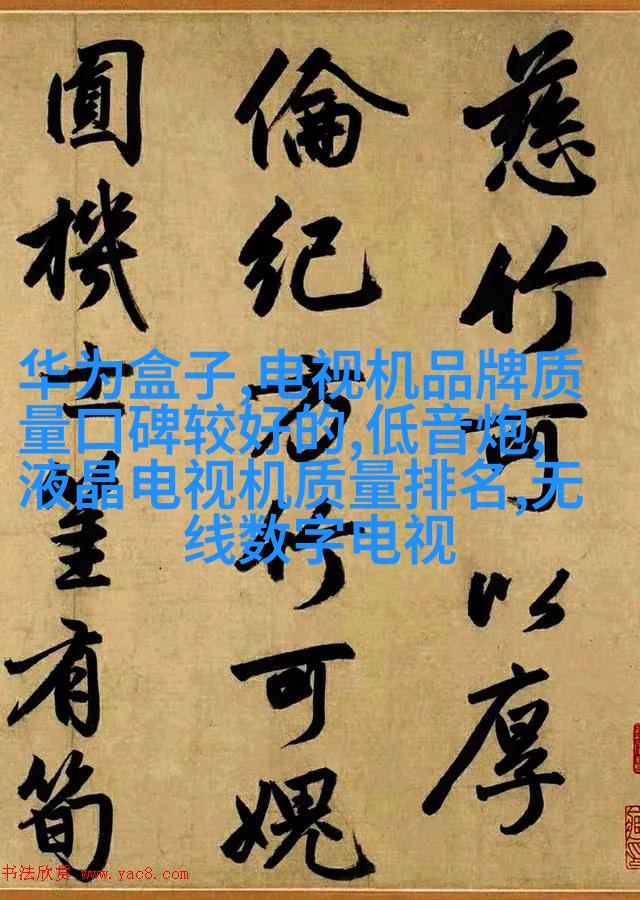 慈竹可以厚
倫紀方竹可媿
圓機士有筍
华为盒子,电视机品牌质
量口碑较好的,低音炮,
液晶电视机质量排名,无
线数字电视
书法欣赏 www.yac8.com